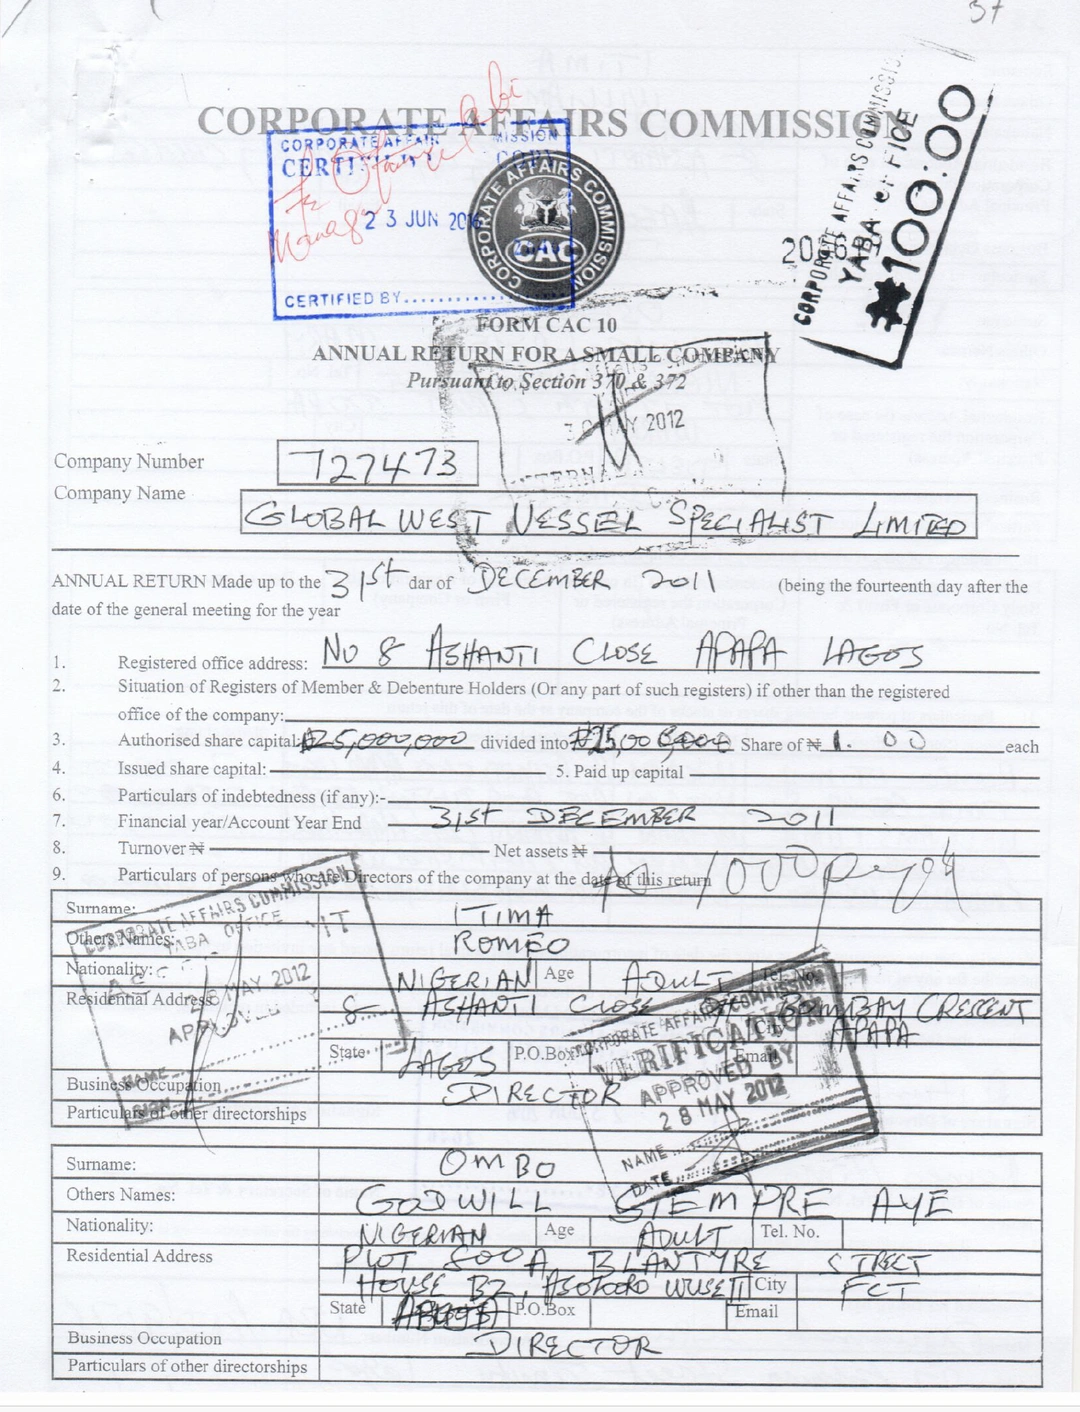 37
CORPORATE AFFAIRS COMMISSION
CORPORATE AFFAIRS COMMISSION
CERTIFIED COPY
Manager
23 JUN
CERTIFIED BY
CORPORATE AFFAIRS COMMISSION
CAC
CORPORATE AFFAIRS COMMISSION
YABA OFFICE
*100:00
FORM CAC 10
ANNUAL RETURN FOR A SMALL COMPANY
Pursuant to Section 370 & 372
30 MAY 2012
Company Number 727473
Company Name GLOBAL WEST VESSEL SPECIALIST LIMITED
ANNUAL RETURN Made up to the 31st dar of DECEMBER 2011 (being the fourteenth day after the
date of the general meeting for the year
1. Registered office address: No 8 ASHANTI CLOSE APAPA LAGOS
2. Situation of Registers of Member & Debenture Holders (Or any part of such registers) if other than the registered
office of the company:
3. Authorised share capital: ₦25,000,000 divided into ₦25,000,000 Share of ₦ 1.00 each
4. Issued share capital: 5. Paid up capital
6. Particulars of indebtedness (if any):-
7. Financial year/Account Year End 31st DECEMBER 2011
8. Turnover ₦ Net assets ₦
9. Particulars of persons who are Directors of the company at the date of this return
Surname: ITIMA
Others Names: ROMEO
Nationality: NIGERIAN Age ADULT Tel. No.
Residential Address 8 ASHANTI CLOSE OFF BOMBAY CRESCENT
City APAPA
State LAGOS P.O.Box Email
Business Occupation DIRECTOR
Particulars of other directorships
CORPORATE AFFAIRS COMMISSION
YABA OFFICE
MAY 2012
APPROVED
NAME
SIGN
CORPORATE AFFAIRS COMMISSION
VERIFICATION
APPROVED BY
28 MAY 2012
NAME
DATE
Surname: OMBO
Others Names: GODWILL STEMPRE AYE
Nationality: NIGERIAN Age ADULT Tel. No.
Residential Address PLOT 800A BLANTYRE STREET
HOUSE B2, ASOKORO WUSE II City FCT
State P.O.Box Email
Business Occupation DIRECTOR
Particulars of other directorships